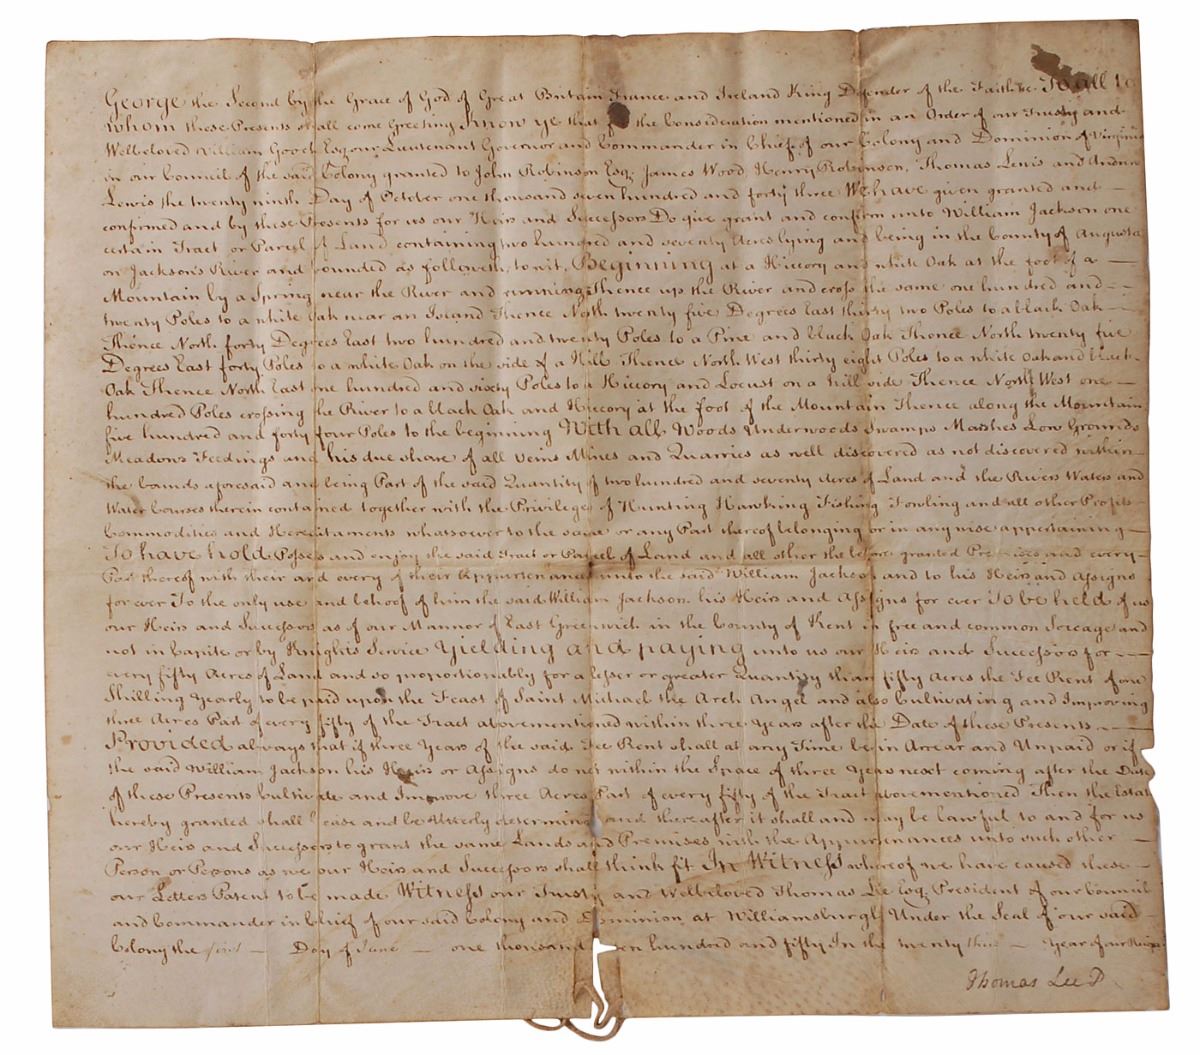 George the Second by the Grace of God of Great Britain France and Ireland King Defender of the Faith &c To all to
whom these Presents shall come Greeting Know ye that for the Consideration mentioned in an Order of our Trusty and
Welbeloved William Gooch Esq. our Lieutenant Governor and Commander in Chief of our Colony and Dominion of Virginia
in our Council of the said Colony granted to John Robinson Esq. James Wood, Henry Robinson, Thomas Lewis and Andrew
Lewis the twenty ninth Day of October one thousand seven hundred and forty three We have given granted and
confirmed and by these Presents for us our Heirs and Successors Do give grant and confirm unto William Jackson one
certain Tract or Parcel of Land containing two hundred and seventy Acres lying and being in the County of Augusta
on Jackson's River and bounded as followeth, to wit, Beginning at a Hiccory and white Oak at the foot of a
Mountain by a Spring near the River and running thence up the River and cross the same one hundred and
twenty Poles to a white Oak near an Island Thence North twenty five Degrees East thirty two Poles to a black Oak
Thence North forty Degrees East two hundred and twenty Poles to a Pine and black Oak Thence North twenty five
Degrees East forty Poles to a white Oak on the side of a Hill Thence North West thirty eight Poles to a white Oak and black
Oak Thence North East one hundred and sixty Poles to a Hiccory and Locust on a hill side Thence North West one
hundred Poles crossing the River to a black Oak and Hiccory at the foot of the Mountain Thence along the Mountain
five hundred and forty four Poles to the beginning With all Woods Underwoods Swamps Marshes Low Grounds
Meadows Feedings and his due share of all Veins Mines and Quarries as well discovered as not discovered within
the bounds aforesaid and being Part of the said Quantity of two hundred and seventy Acres of Land and the Rivers Waters and
Water Courses therein contained together with the Privileges of Hunting Hawking Fishing Fowling and all other Profits
Commodities and Hereditaments whatsoever to the same or any Part thereof belonging or in any wise appertaining
To have hold Possess and enjoy the said Tract or Parcel of Land and all other the before granted Premises and every
Part thereof with their and every of their Appurtenances unto the said William Jackson and to his Heirs and Assigns
for ever To the only use and behoof of him the said William Jackson his Heirs and Assigns for ever To be held of us
our Heirs and Successors as of our Mannor of East Greenwich in the County of Kent in free and common Soccage and
not in Capite or by Knights Service Yielding and paying unto us our Heirs and Successors for
every fifty Acres of Land and so proportionably for a lesser or greater Quantity than fifty Acres the Fee Rent of one
Shilling Yearly to be paid upon the Feast of Saint Michael the Arch Angel and also Cultivating and Improving
three Acres Part of every fifty of the Tract abovementioned within three Years after the Date of these Presents
Provided always that if three Years of the said Fee Rent shall at any Time be in Arrear and Unpaid or if
the said William Jackson his Heirs or Assigns do not within the Space of three Years next coming after the Date
of these Presents Cultivate and Improve three Acres Part of every fifty of the Tract abovementioned Then the Estate
hereby granted shall Cease and be Utterly determined and thereafter it shall and may be Lawful to and for us
our Heirs and Successors to grant the same Lands and Premises with the Appurtenances unto such other
Person or Persons as we our Heirs and Successors shall think fit In Witness whereof we have caused these
our Letters Patent to be made Witness our Trusty and Welbeloved Thomas Lee Esq. President of our Council
and Commander in Chief of our said Colony and Dominion at Williamsburgh Under the Seal of our said
Colony the first Day of June one thousand seven hundred and fifty In the twenty third Year of our Reign
Thomas Lee P.